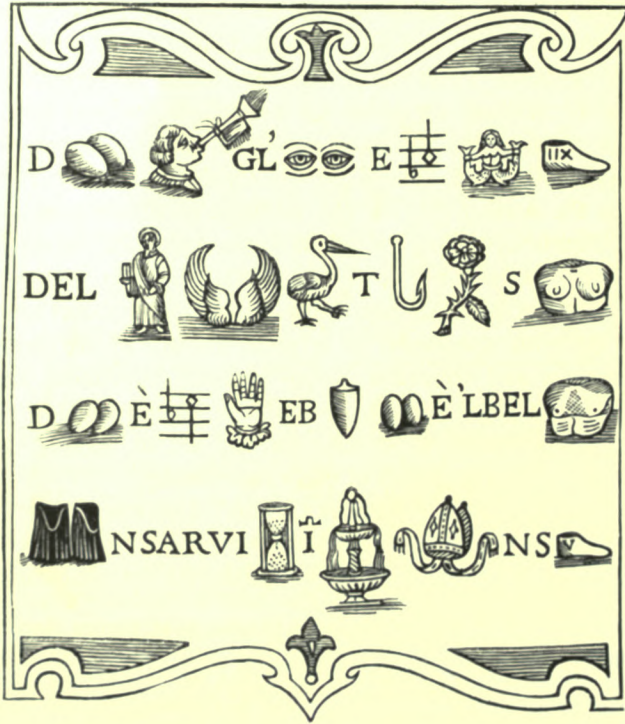 D GL' E IIX
DEL T S
D È EB È 'LBEL
NSARVI Ī NS V